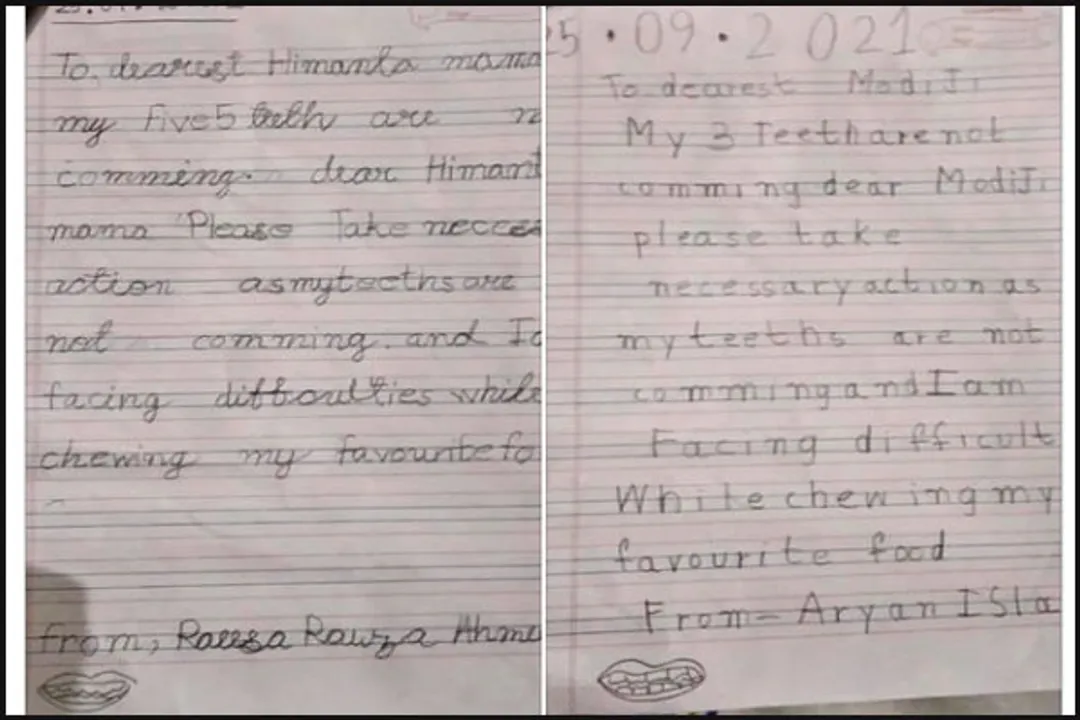 To, dearest Himanta mama
my Five5 teeth are
comming. dear Himant
mama Please Take necces
action asmyteethsare
not comming. and I
facing difficulties while
chewing my favourite fo
from, Raeesa Rawza Ahme
25.09.2021
To dearest ModiJi
My 3 Teeth are not
comming dear ModiJi
please take
necessary action as
my teeths are not
comming and I am
Facing difficult
While chewing my
favourite food
From- Aryan ISla